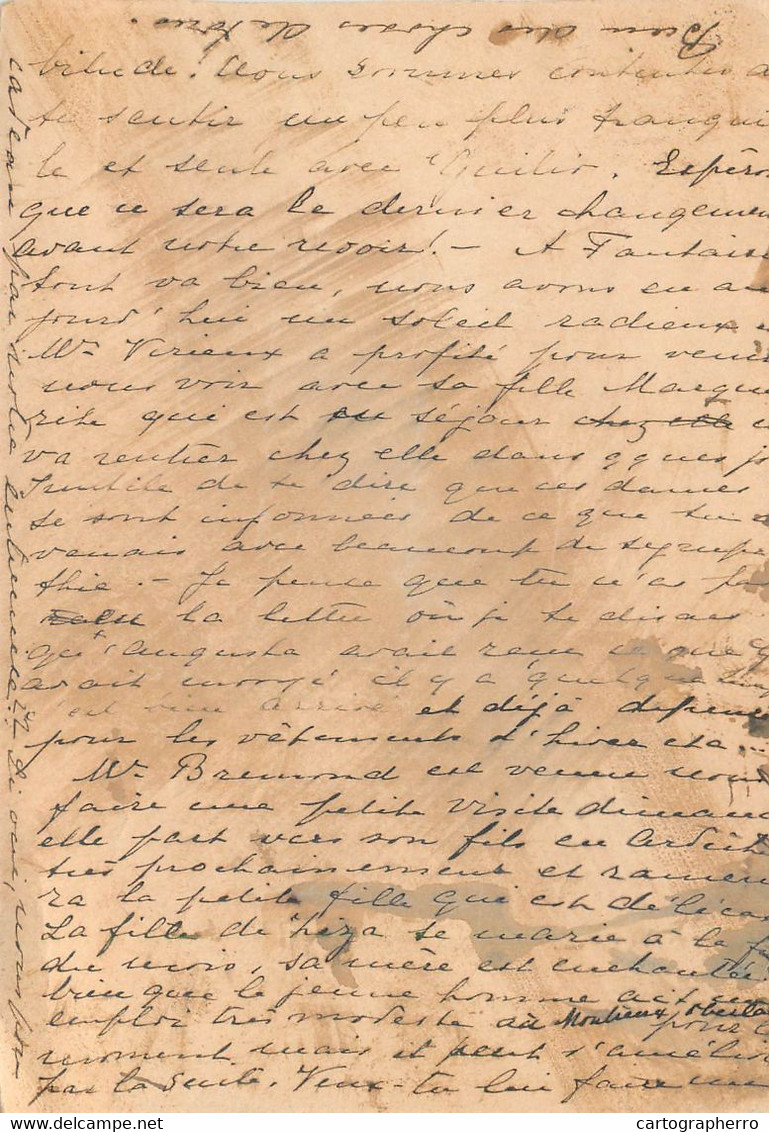 bitude! Nous sommes contentes d
te sentir un peu plus tranqui
le et seule avec Guilio. Espéro
que ce sera le dernier changemen
avant notre revoir! - A Fantaisi
tout va bien, nous avons eu au
jourd'hui un soleil radieux
Me Virieux a profité pour veni
nous voir avec sa fille Margue
rite qui est en séjour chez elle
va rentrer chez elle dans qques j
Inutile de te dire que ces dames
se sont informées de ce que tu
venais avec beaucoup de sympa
thie. - Je pense que tu n'as pas
la lettre où je te disais
qu'Augusta avait reçu ce que
avait envoyé il y a quelque
c'est bien arrivé et déjà dépens
pour les vêtements d'hiver eta
Me Bremond est venue nous
faire une petite visite dimanc
elle part vers son fils en Ardèch
très prochainement et ramèn
ra la petite fille qui est délica
La fille de Léza se marie à la f
du mois, sa mère est enchantée
bien que le jeune homme ait un
emploi très modeste au Montreux Oberla pour
moment mais il peut s'amélio
par la suite. Veux-tu lui faire un
cadeau par notre entremise? Si oui,
Bien des choses de tous.
cartographerro